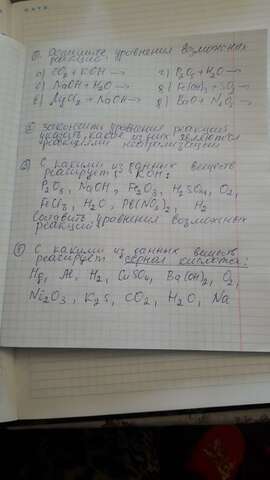 ① Допишите уравнения возможных
реакций:
а) CO₂ + KOH → г) P₂O₅ + H₂O →
б) NaOH + H₂O → д) Fe(OH)₃ + SO₃
в) MgCl₂ + NaOH → е) BaO + N₂O₅
② Закончите уравнения реакций
укажите, какие из них являются
реакциями нейтрализации
③ С какими из данных веществ
реагирует KOH:
P₂O₅, NaOH, Fe₂O₃, H₂SO₄, O₂,
FeCl₃, H₂O, Pb(NO₃)₂, H₂
Составьте уравнения возможных
реакций
С какими из данных веществ
реагирует серная кислота:
Hg, Al, H₂, CuSO₄, Ba(OH)₂, O₂,
K₂S, CO₂, H₂O, Na